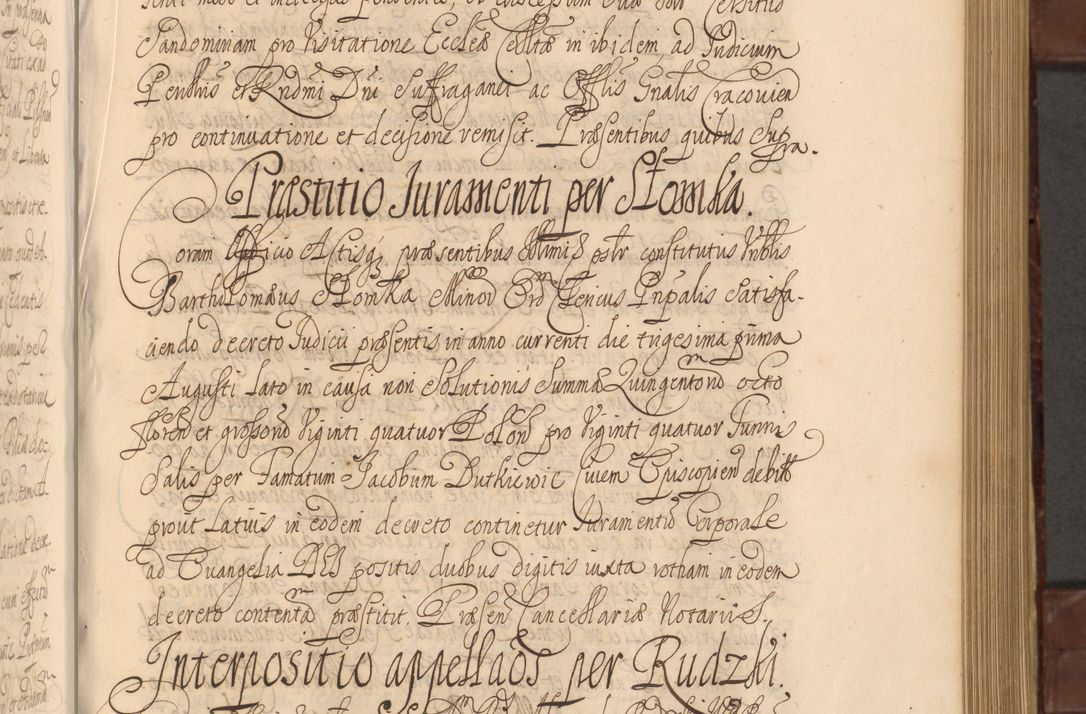 Sandomiriam pro Visitatione Ecclæ Collæ in ibidem, ad Judicium
Pendens et Rndmi Dni Suffraganei ac Offlis Gnalis Cracovien
pro continuatione et decisione remisit. Præsentibus quibus supra.
Præstitio Juramenti per Słomka.
Coram Officio Actisq præsentibus constitutus Nblis
Bartholomæus Słomka Minor Ord Clericus Pnpalis Satisfa-
ciendo decreto Judicii præsentis in anno currenti die trigesima prima
Augusti lato in causa non solutionis summæ Quingentorū octo
floren et grossorū Viginti quatuor Polon pro Viginti quatuor Tunnis
Salis per Famatum Jacobum Dutkiewic Civem Episcopien debitæ
prout latius in eodem decreto continetur Juramentū Corporale
ad Evangelia DEI positis duobus digitis iuxta rotham in eodem
decreto contentā præstitit. Præsen Cancellariæ Notariis.
Interpositio appellaōs per Rudzki.